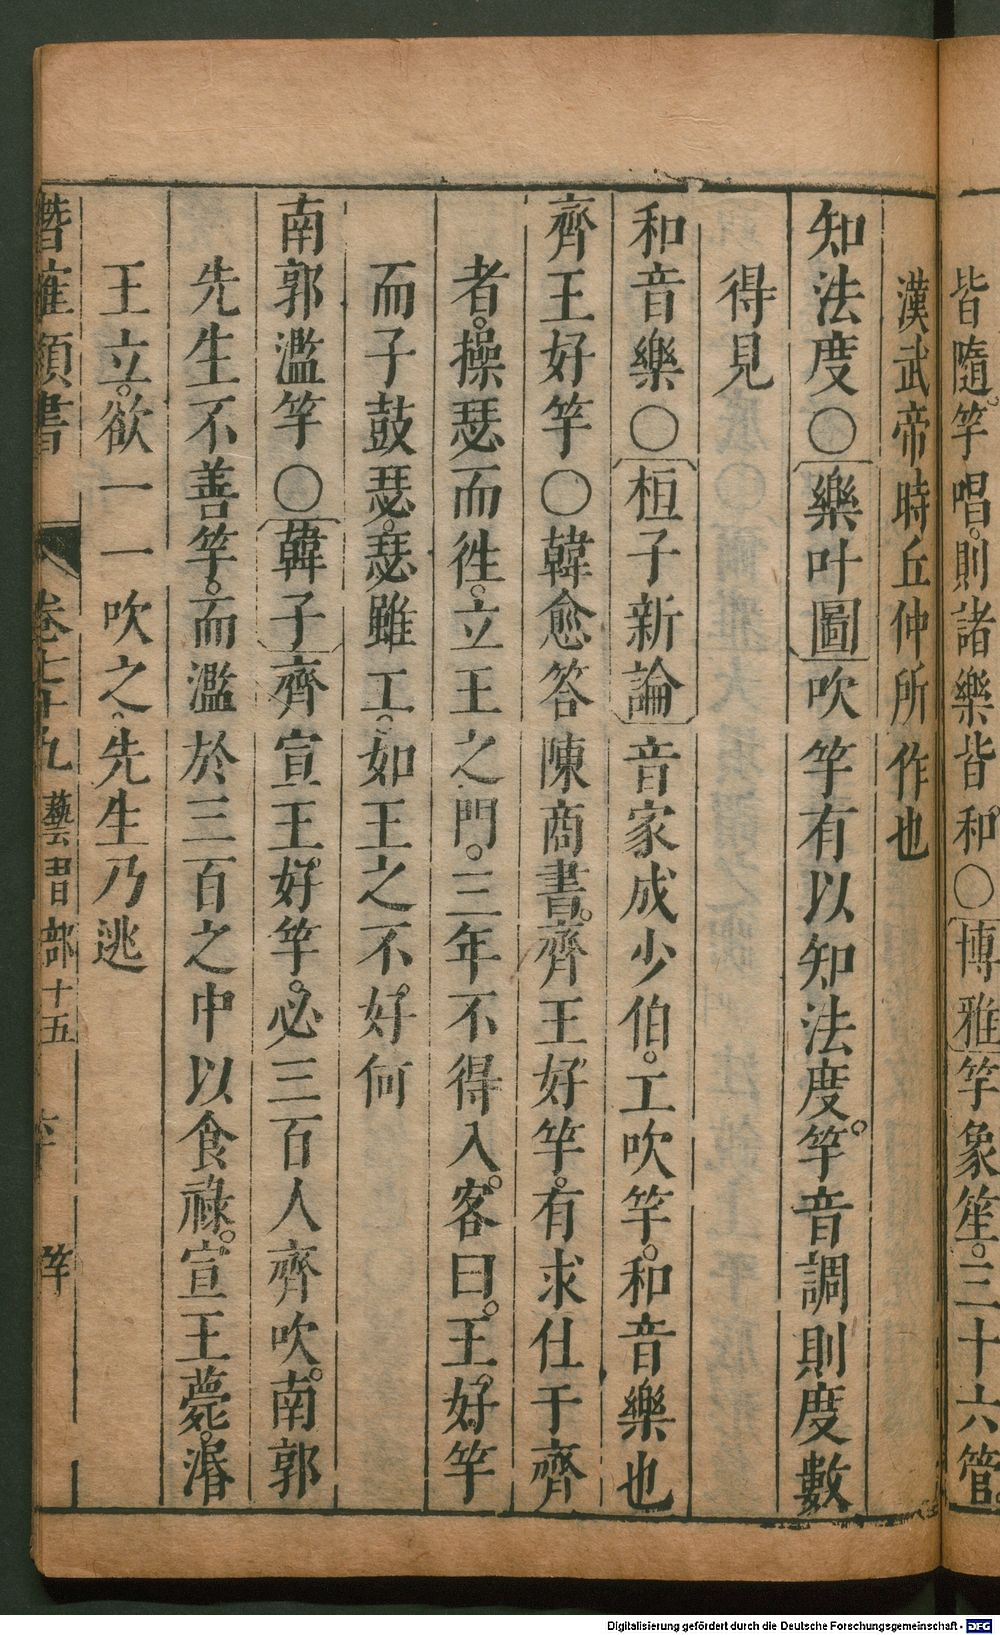 皆隨竽唱。則諸樂皆和〇博雅竽象笙。三十六管。
漢武帝時丘仲所作也
知法度〇樂叶圖吹竽有以知法度。竽音調則度數
得見
和音樂〇桓子新論音家成少伯。工吹竽。和音樂也
齊王好竽〇韓愈答陳商書。齊王好竽。有求仕于齊
者。操瑟而徃。立王之門。三年不得入。客曰。王好竽
而子鼓瑟。瑟雖工。如王之不好何
南郭濫竽〇韓子齊宣王好竽。必三百人齊吹。南郭
先生不善竽。而濫於三百之中以食祿。宣王薨。湣
王立。欲一一吹之、先生乃逃
潛確類書 卷七十九 藝習部十五 竽
Digitalisierung gefördert durch die Deutsche Forschungsgemeinschaft - DFG